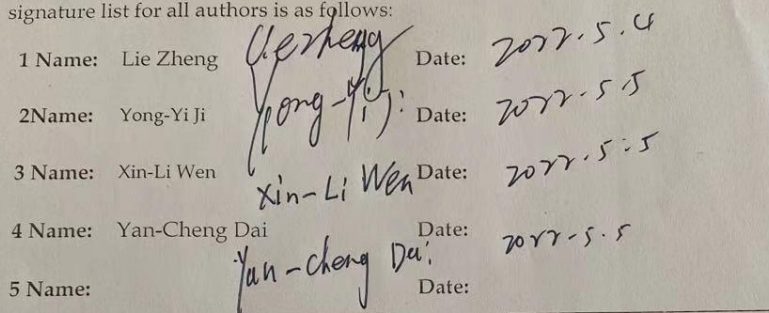 signature list for all authors is as follows:
1 Name: Lie Zheng Lie zheng Date: 2022.5.4
2Name: Yong-Yi Ji Yong-Yi Ji Date: 2022.5.5
3 Name: Xin-Li Wen Xin-Li Wen Date: 2022.5.5
4 Name: Yan-Cheng Dai Yan-cheng Dai Date: 2022.5.5
5 Name: Date: